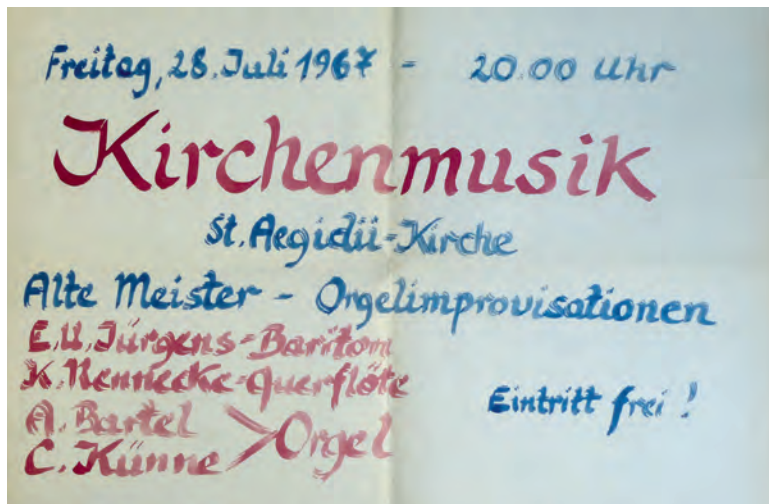 Freitag, 28. Juli 1967 - 20.00 Uhr
Kirchenmusik
St. Aegidii-Kirche
Alte Meister - Orgelimprovisationen
E.U. Jürgens-Bariton
K. Rennecke-Querflöte
A. Bartel
C. Künne > Orgel
Eintritt frei !